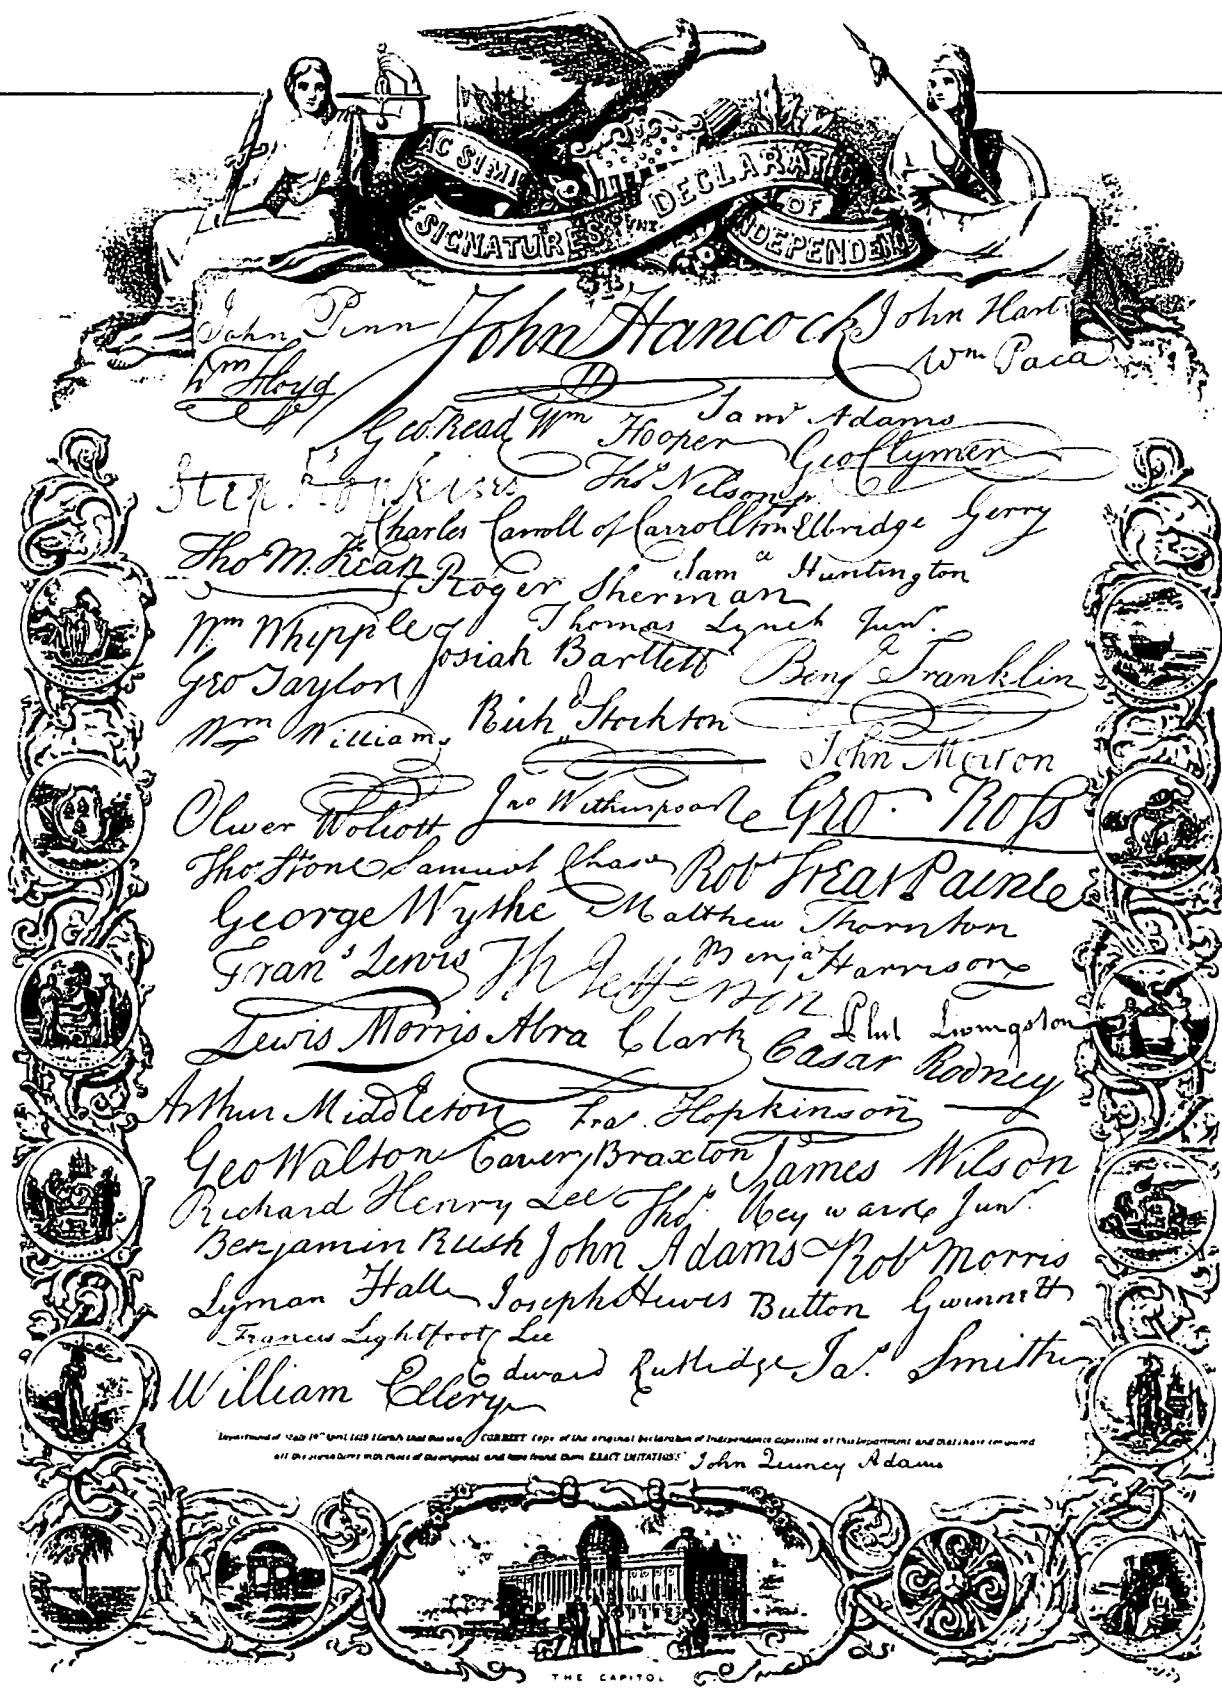 FAC SIMI
SIGNATURES TO THE DECLARATION OF INDEPENDENC
John Penn John Hancock John Hart
Wm Floyd Wm Paca
Geo. Read Wm Hooper Saml Adams Geo Clymer
Step. Hopkins Thos Nelson jr
Charles Carroll of Carrollton Elbridge Gerry
Tho M. Kean Roger Sherman Saml Huntington
Wm Whipple Thomas Lynch Junr.
Josiah Bartlett Benj Franklin
Geo Taylor
Wm Williams Richd Stockton John Morton
Oliver Wolcott Jno Witherspoon Geo. Ross
Thos Stone Samuel Chase Robt Treat Paine
George Wythe Matthew Thornton
Frans Lewis Th Jefferson Benja Harrison
Lewis Morris Abra Clark Phil Livingston
Casar Rodney
Arthur Middleton Fras. Hopkinson
Geo Walton Carter Braxton James Wilson
Richard Henry Lee Thos. Heyward Junr.
Benjamin Rush John Adams Robt Morris
Lyman Hall Joseph Hewes Button Gwinnett
Francis Lightfoot Lee
William Ellery Edward Rutledge Jas. Smith
Department of State 19th April 1819 I Certify that this is a CORRECT copy of the original Declaration of Independence deposited at this Department and that I have compared
all the signatures with those of the original and have found them EXACT IMITATIONS John Quincy Adams
THE CAPITOL